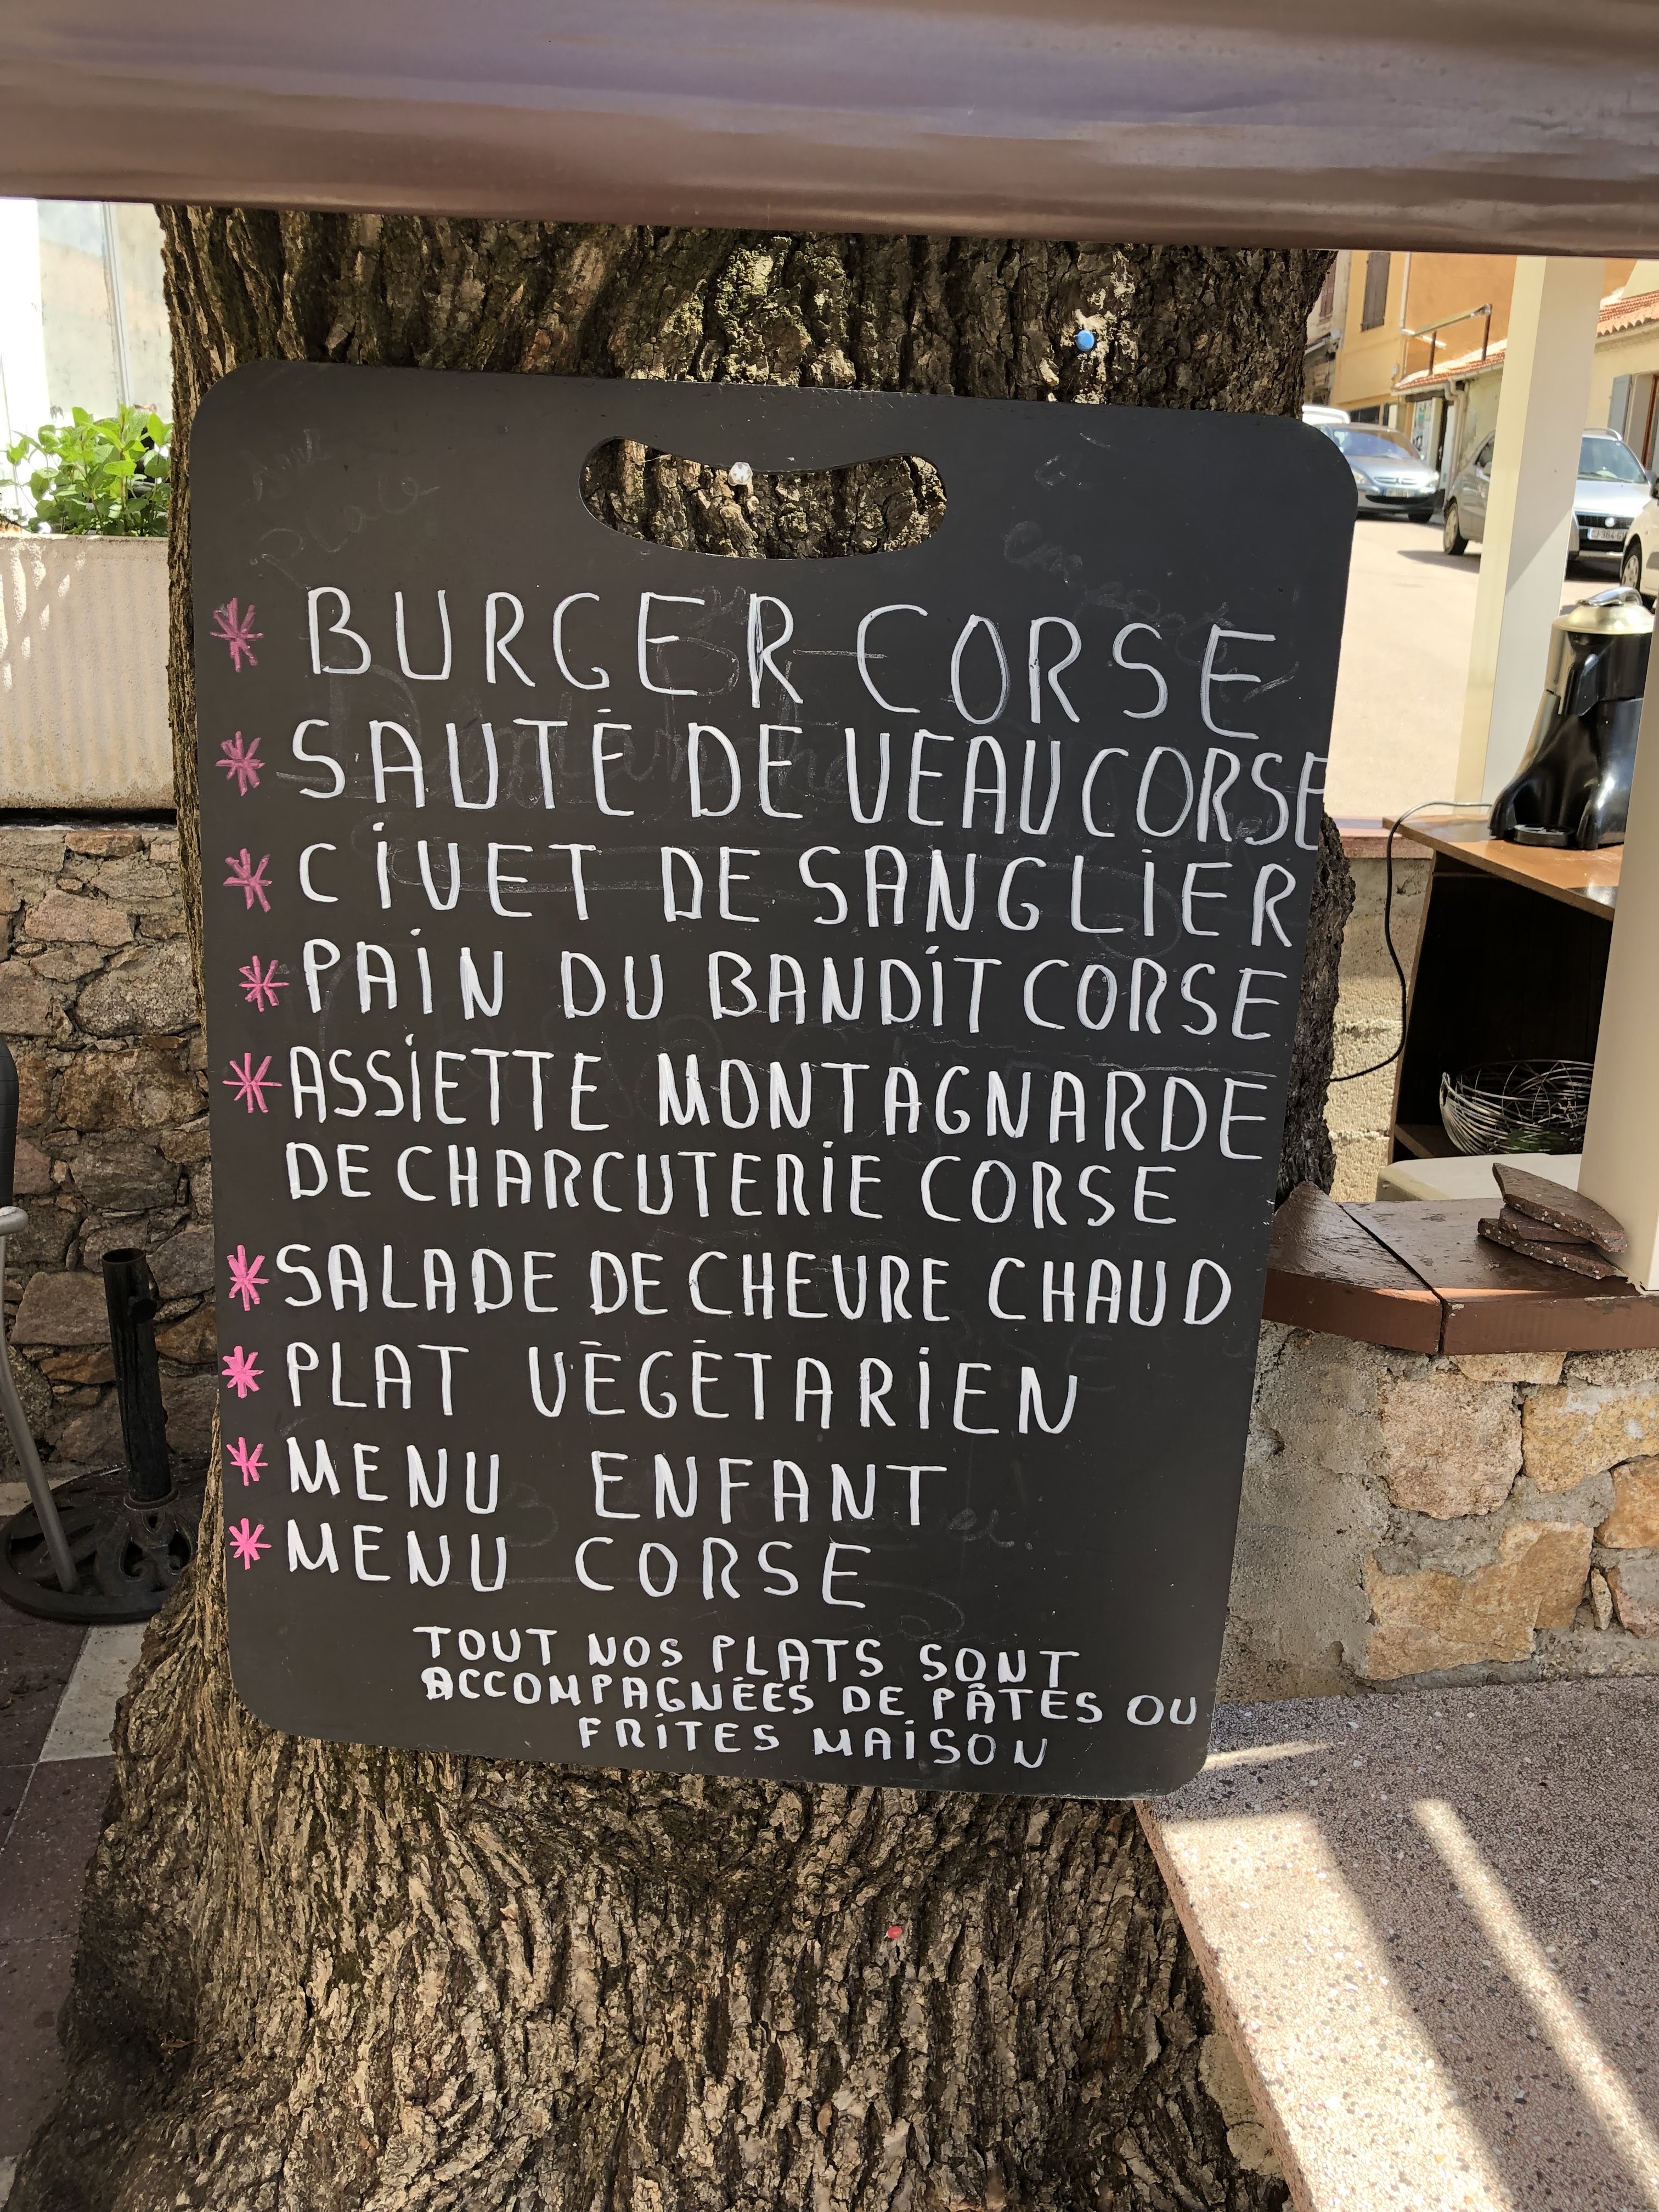 * BURGER CORSE
* SAUTÉ DE VEAU CORSE
* CIVET DE SANGLIER
* PAIN DU BANDIT CORSE
* ASSIETTE MONTAGNARDE
DE CHARCUTERIE CORSE
* SALADE DE CHEVRE CHAUD
* PLAT VÉGÉTARIEN
* MENU ENFANT
* MENU CORSE
TOUT NOS PLATS SONT
ACCOMPAGNÉES DE PÂTES OU
FRITES MAISON